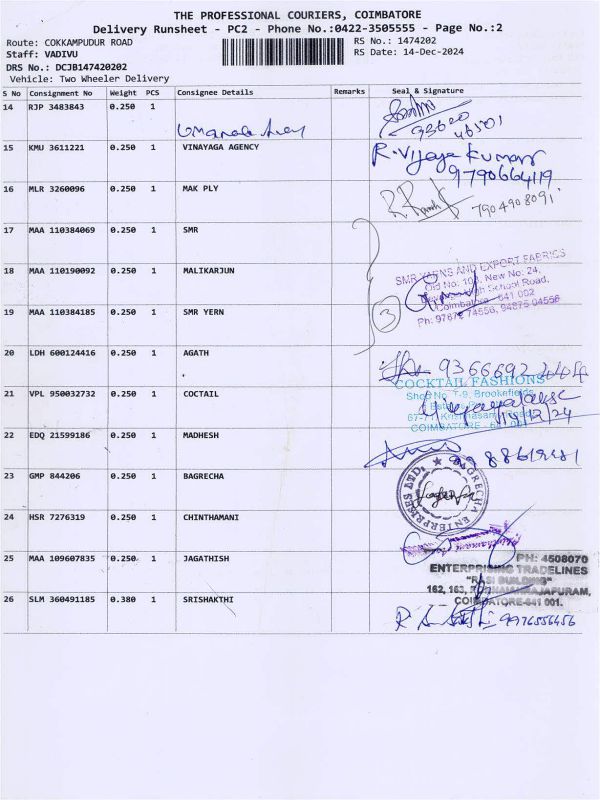 THE PROFESSIONAL COURIERS, COIMBATORE
Delivery Runsheet - PC2 - Phone No.:0422-3505555 - Page No.:2
Route: COKKAMPUDUR ROAD RS No.: 1474202
Staff: VADIVU RS Date: 14-Dec-2024
DRS No.: DCJB147420202
Vehicle: Two Wheeler Delivery
S No Consignment No Weight PCS Consignee Details Remarks Seal & Signature
14 RJP 3483843 0.250 1
93620
46501
15 KMU 3611221 0.250 1 VINAYAGA AGENCY R. Vijaya Kumar
9790664119
16 MLR 3260096 0.250 1 MAK PLY
7904908091
17 MAA 110384069 0.250 1 SMR
SMR YARNS AND EXPORT FABRICS
18 MAA 110190092 0.250 1 MALIKARJUN
New No: 24,
High School Road,
Coimbatore - 641 002
19 MAA 110384185 0.250 1 SMR YERN
Ph: 97872 74556, 94875 04556
3
20 LDH 600124416 0.250 1 AGATH
9366692
COCKTAIL FASHIONS
21 VPL 950032732 0.250 1 COCTAIL
Shop No. T-9, Brookefields
14/12/24
COIMBATORE - 641 001
22 EDQ 21599186 0.250 1 MADHESH
23 GMP 844206 0.250 1 BAGRECHA
BAGRECHA ENTERPRISES LTD.
24 HSR 7276319 0.250 1 CHINTHAMANI
25 MAA 109607835 0.250 1 JAGATHISH
PH: 4508070
ENTERPRISING TRADELINES
"RASI BUILDING"
162, 163,
COIMBATORE-641 001.
26 SLM 360491185 0.380 1 SRISHAKTHI
9976556456